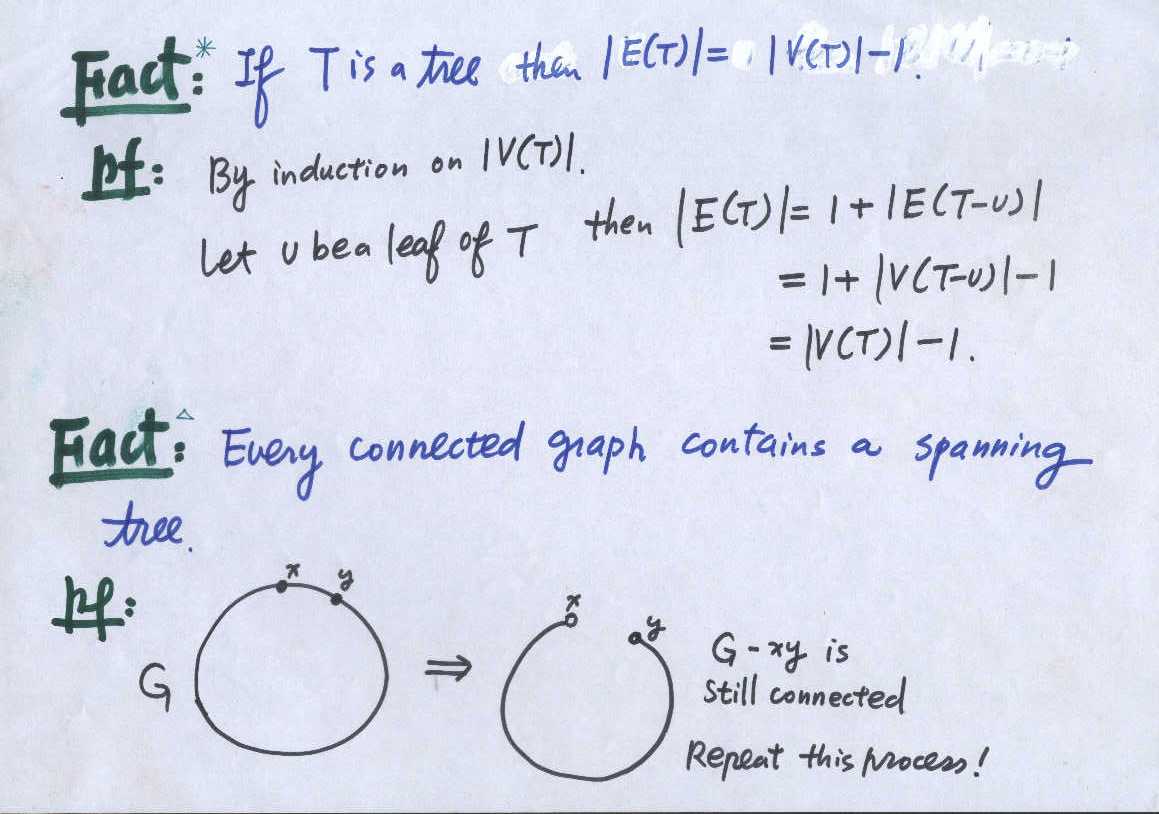 Fact*: If T is a tree then |E(T)| = |V(T)| - 1.
pf: By induction on |V(T)|.
Let u be a leaf of T then |E(T)| = 1 + |E(T-u)|
= 1 + |V(T-u)| - 1
= |V(T)| - 1.
Fact△: Every connected graph contains a spanning
tree.
pf:
x y
G
⇒
x y
G - xy is
still connected
Repeat this process!